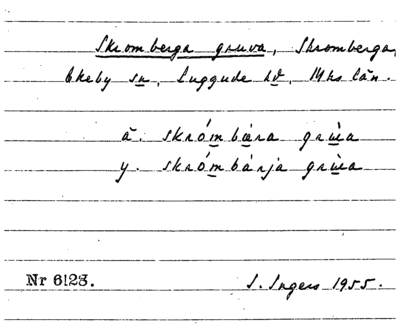 Skromberga gruva, Skromberga,
Ekeby sn, Luggude hd, Mhs län.
ä. skrómbära grùa
y. skrómbárja grùa
Nr 6123. I. Ingers 1955.